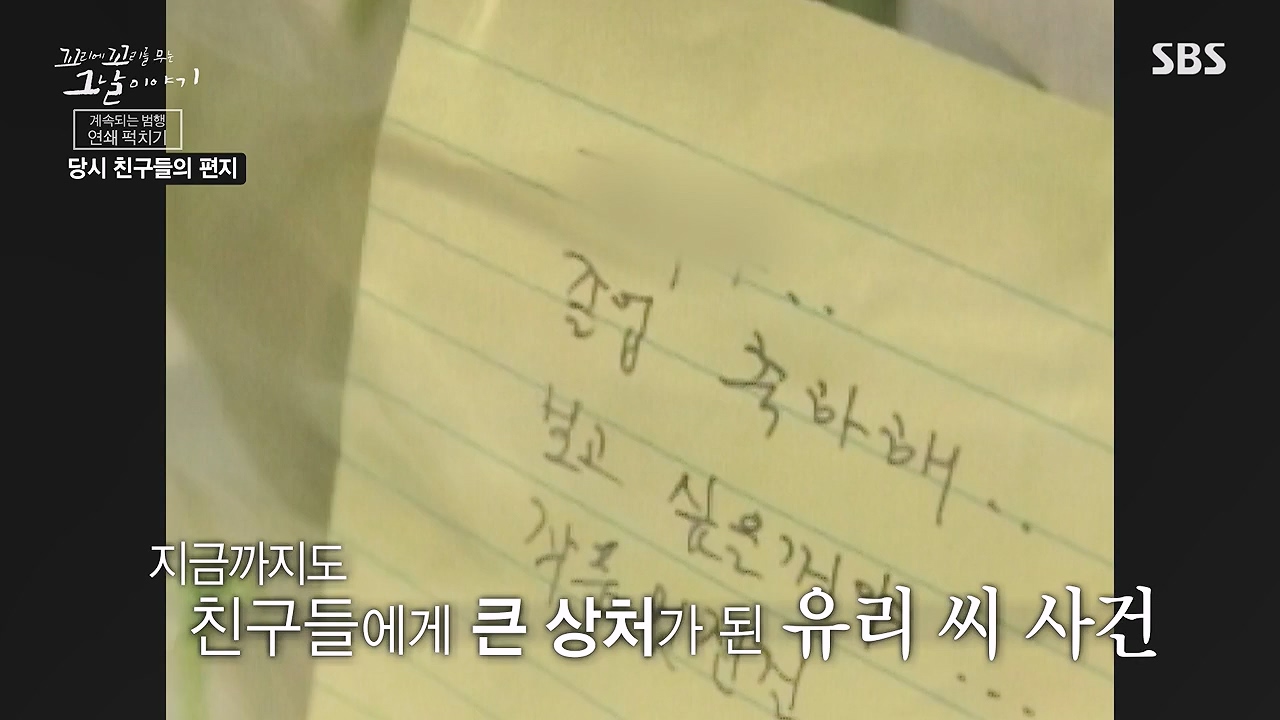 꼬리에 꼬리를 무는
그날 이야기
SBS
계속되는 범행
연쇄 퍽치기
당시 친구들의 편지
졸업 축하해..
보고 싶은
지금까지도
친구들에게 큰 상처가 된 유리 씨 사건